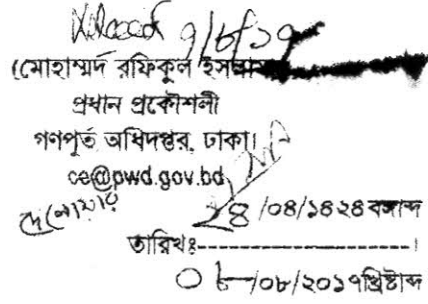 ৭/৮/১৭
(মোহাম্মদ রফিকুল ইসলাম)
প্রধান প্রকৌশলী
গণপূর্ত অধিদপ্তর, ঢাকা।
ce@pwd.gov.bd
২৪ /০৪/১৪২৪ বঙ্গাব্দ
তারিখঃ-------------------।
০৮/০৮/২০১৭খ্রিষ্টাব্দ